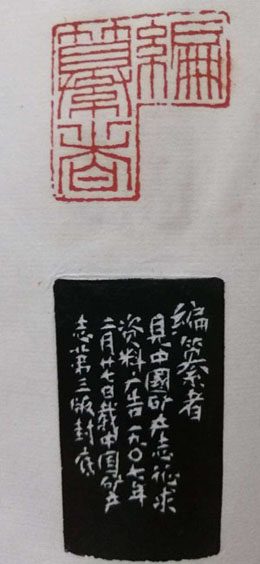 编纂者
编纂者
见中国矿产志征求
资料广告一九〇七年
二月廿七日载中国矿产
志第三版封底